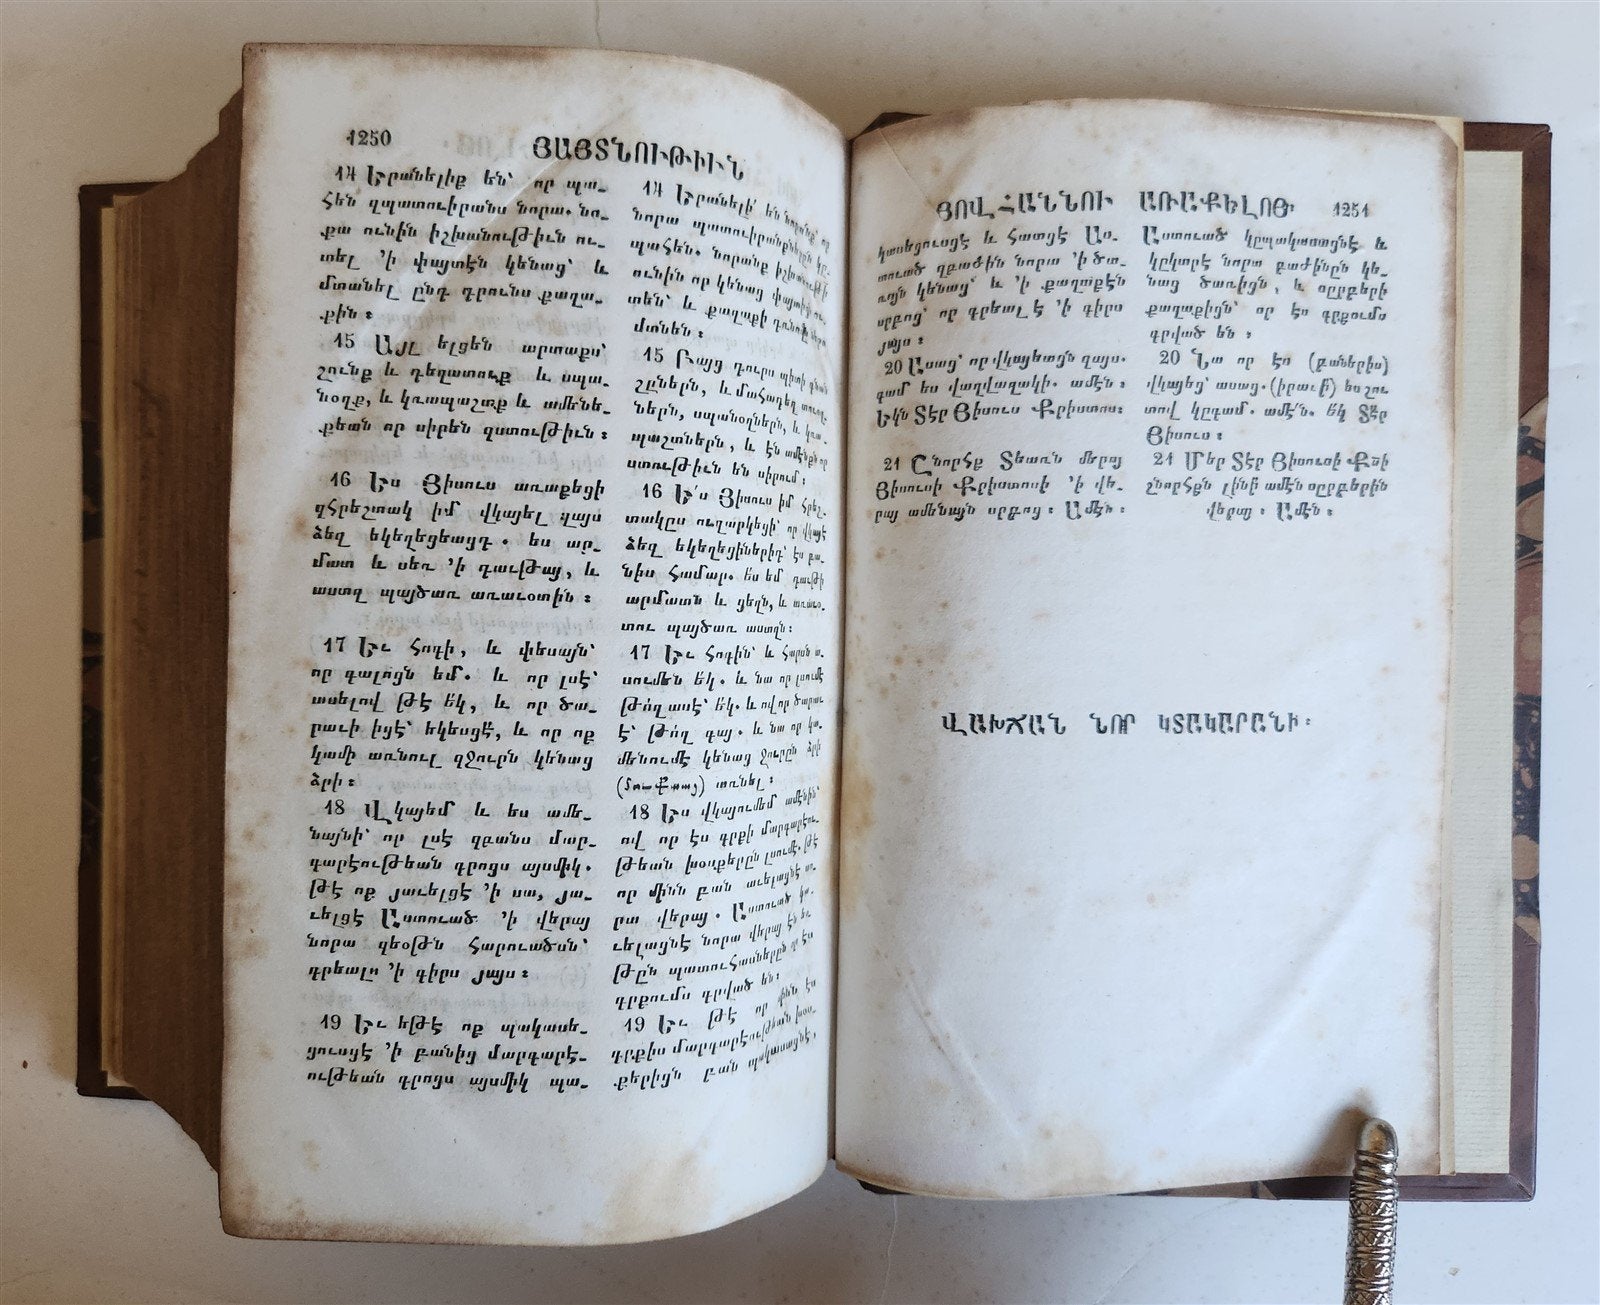 1250
ՅԱՅՏՆՈՒԹԻՒՆ
14 Երանելիք են՝ որ պա-
հեն զպատուիրանս նորա. նո-
քա ունին իշխանութիւն ու-
տել ՚ի փայտէն կենաց՝ և
մտանել ընդ դրունս քաղա-
քին։
15 Այլ ելցեն արտաքս՝
շունք և դեղատուք և սպա-
նօղք, և կռապաշտք և ամենե-
քեան որ սիրեն զստութիւն։
16 Ես Յիսուս առաքեցի
զհրեշտակ իմ վկայել զայս
ձեզ եկեղեցեացդ. ես ար-
մատ և սեռ ՚ի դաւթայ, և
աստղ պայծառ առաւօտին։
17 Եւ հոգի, և փեսայն՝
որ գալոցն եմ. և որ լսէ՝
ասելով թէ ե՛կ, և որ ծա-
րաւի իցէ՝ եկեսցէ, և որ ոք
կամի առնուլ զջուրն կենաց
ձրի։
18 Վկայեմ և ես ամե-
նայնի՝ որ լսէ զբանս մար-
գարէութեան գրոցս այսմիկ.
թէ ոք յաւելցէ ՚ի սա, յա-
ւելցէ Աստուած ՚ի վերայ
նորա զեօթն հարուածսն՝
գրեալս ՚ի գիրս յայս։
19 Եւ եթէ ոք պակասե-
ցուսցէ ՚ի բանից մարգարէ-
ութեան գրոցս այսմիկ պա-
14 Երանելի՛ են նորանք՝ որ
նորա պատուիրանքներըն կը-
պահեն. նորանք իշխանութի
ունին որ կենաց փայտիցն ու-
տեն՝ և քաղաքի դռնովը
մտնեն։
15 Բայց դուրս պիտի գնան
շըներն, և մահադեղ տուօղ-
ներն, սպանօղներն, և կռա-
պաշտներն, և էն ամէնքն որ
ստութիւն են սիրում։
16 Ե՛ս Յիսուս իմ հրեշ-
տակըս ուղարկեցի՝ որ վկայէ
ձեզ եկեղեցիներիդ՝ էս բա-
նիս համար. ես եմ դաւթի
արմատն և ցեղն, և առաւօ-
տու պայծառ աստղն։
17 Եւ հոգին՝ և հարսն ա-
սումեն ե՛կ. և նա որ լսումէ
թո՛ղ ասէ՝ ե՛կ. և ով որ ծարաւ
է՝ թո՛ղ գայ. և նա որ կա-
մենումէ կենաց ջուրըն ձրի
առնել։
18 Ես վկայումեմ ամէնին՝
ով որ էս գրքի մարգարէու-
թեան խօսքերըն լսումէ. թէ
որ մինն բան աւելացնէ սո-
րա վերայ. Աստուած կա-
ւելացնէ նորա վերայ էն եօ-
թըն պատուհասներըն որ էս
գրքումս գրված են։
19 Եւ թէ որ մին էս
գրքիս մարգարէութեան խօս-
քերիցն բան պակասացնէ,
ՅՈՎՀԱՆՆՈՒ ԱՌԱՔԵԼՈՅ 1251
կասեցուսցէ և հատցէ Աս-
տուած զբաժին նորա ՚ի ծա-
ռոյն կենաց՝ և ՚ի քաղաքէն
սրբոց՝ որ գրեալ է ՚ի գիրս
յայս։
20 Ասաց՝ որ վկայեացն զայս.
գամ ես վաղվաղակի. ամէն։
Եկն Տէր Յիսուս Քրիստոս։
21 Շնորհք Տեառն մերոյ
Յիսուսի Քրիստոսի ՚ի վե-
րայ ամենայն սրբոց։ Ամէն։
Աստուած կըպակասացնէ և
կըկտրէ նորա բաժինըն կե-
նաց ծառիցն, և սըրբերի
քաղաքիցն՝ որ էս գրքումս
գրված են։
20 Նա որ էս (բաներիս)
վկայեց՝ ասաց. (իրաւի՛) ես շու-
տով կըգամ. ամէ՛ն. ե՛կ Տէր
Յիսուս։
21 Մեր Տէր Յիսուսի Քսի
շնորհքն լինի՛ ամէն սըրբերին
վերայ։ Ամէն։
ՎԱԽՃԱՆ ՆՈՐ ԿՏԱԿԱՐԱՆԻ։